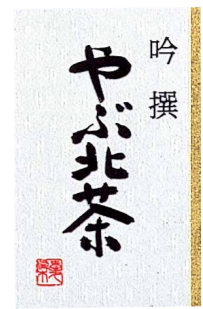 吟撰
やぶ北茶